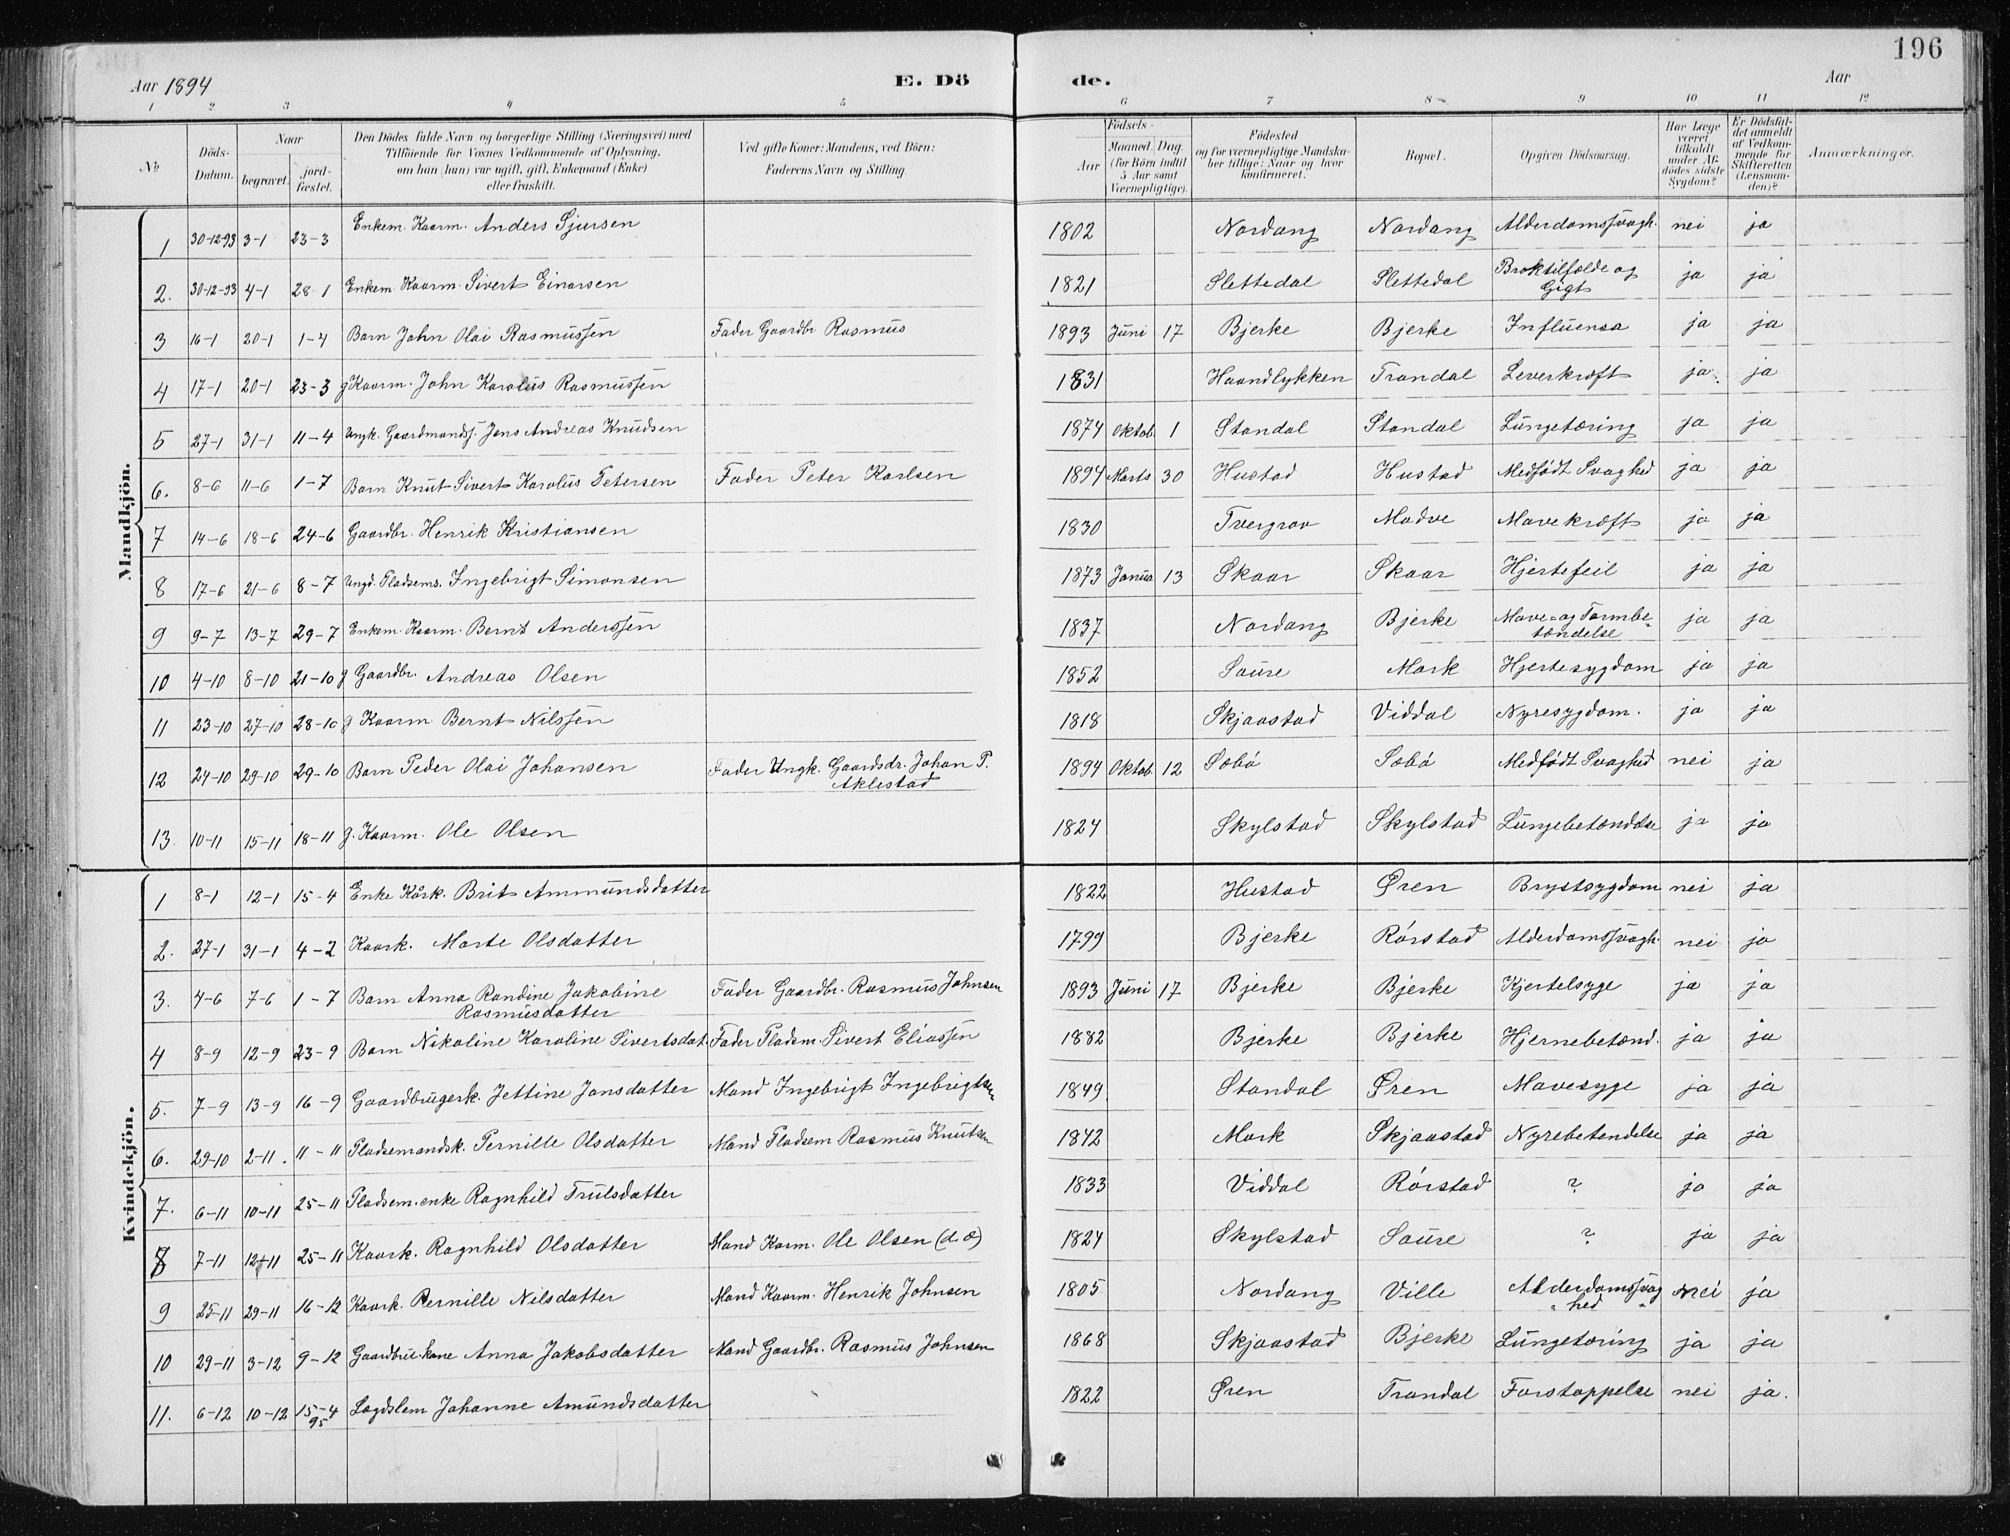 196
Aar 1894 E. Dö de. Aar
1 2 3 4 5 6 7 8 9 10 11 12
No Döds-Datum. Naar begravet. jord-fæstet. Den Dödes fulde Navn og borgerlige Stilling (Næringsvei) med Tilföiende for Voxnes Vedkommende af Oplysning, om han (hun) var ugift, gift, Enkemand (Enke) eller fraskilt. Ved gifte Koner: Mandens, ved Börn: Faderens Navn og Stilling. Födsels- Aar Maaned. Dag. (for Börn indtil 5 Aar samt Værnepligtige). Födested og for værnepligtige Mandskaber tillige: Naar og hvor konfirmeret. Bopæl. Opgiven Dödsaarsag. Har Læge været tilkaldt under Afdödes sidste Sygdom? Er Dödsfaldet anmeldt af Vedkommende for Skifteretten (Lensmanden)? Anmærkninger.
Mandkjön.
1 30-12-93 3-1 23-3 Enkem. Kaarm. Anders Sjursen 1802 Nordang Nordang Alderdomssvagh. nei ja
2. 30-12-93 4-1 28-1 Enkem Kaarm. Sivert Einarsen 1821 Slettedal Slettedal Broktilfælde og Gigt ja ja
3 16-1 20-1 1-4 Barn John Olai Rasmussen Fader Gaardbr Rasmus 1893 Juni 17 Bjerke Bjerke Influensa ja ja
4 17-1 20-1 23-3 g Kaarm. John Karolus Rasmussen 1831 Haandlykken Trandal Leverkræft ja ja
5 27-1 31-1 11-4 Ungk. Gaardmands. Jens Andreas Knudsen 1874 Oktob. 1 Standal Standal Lungetæring ja ja
6. 8-6 11-6 1-7 Barn Knut Sivert Karolus Petersen Fader Peter Karlsen 1894 Marts 30 Hustad Hustad Medfødt Svaghed ja ja
7 14-6 18-6 24-6 Gaardbr. Henrik Kristiansen 1830 Tvergrov Madve Mavekræft ja ja
8 17-6 21-6 8-7 Ungd. Pladsems. Ingebrigt Simonsen 1873 Janua 13 Skaar Skaar Hjertefeil ja ja
9 9-7 13-7 29-7 Enkem. Kaarm. Bernt Anderssen 1837 Nordang Bjerke Mave- og Tarmbetændelse ja ja
10 4-10 8-10 21-10 g Gaardbr. Andreas Olsen 1852 Saure Mork Hjertesygdom ja ja
11 23-10 27-10 28-10 g Kaarm Bernt Nilssen 1818 Skjaastad Viddal Nyresygdom. ja ja
12 24-10 29-10 29-10 Barn Peder Olai Johansen Fader Ungk. Gaardsdr. Johan P. Aklestad 1894 Oktob. 12 Sæbø Sæbø Medfødt Svaghed nei ja
13. 10-11 15-11 18-11 g. Kaarm. Ole Olsen 1824 Skylstad Skylstad Lungebetændelse ja ja
Kvindekjön.
1 8-1 12-1 15-4 Enke Kårk. Brit Ammundsdatter 1822 Hustad Øren Brystsygdom nei ja
2. 27-1 31-1 4-2 Kaark. Marte Olsdatter 1799 Bjerke Rørstad Alderdomssvagh. nei ja
3. 4-6 7-6 1-7 Barn Anna Randine Jakobine Rasmusdatter Fader Gaardbr. Rasmus Johnsen 1893 Juni 17 Bjerke Bjerke Kjertelsyge ja ja
4 8-9 12-9 23-9 Barn Nikoline Karoline Sivertsdat. Fader Pladsm. Sivert Eliassen 1882 Bjerke Bjerke Hjernebetænd. ja ja
5. 7-9 13-9 16-9 Gaardbrugerk. Jettine Jansdatter Mand Ingebrigt Ingebrigtsen 1849 Standal Øren Mavesyge ja ja
6. 29-10 2-11. 11-11 Pladsemandsk. Pernille Olsdatter Mand Pladsem Rasmus Knutsen 1842 Mork Skjaastad Nyrebetendelse ja ja
7. 6-11 10-11 25-11 Pladsem.enke Ragnhild Trulsdatter 1833 Viddal Rørstad ? ja ja
8 7-11 12-11 25-11 Kaark. Ragnhild Olsdatter Mand Karm. Ole Olsen (d. æ) 1824 Skylstad Saure ? ja ja
9 25-11 29-11 16-12 Kaark. Pernille Nilsdatter Mand Kaarm. Henrik Johnsen 1805 Nordang Ville Alderdomssvaghed nei ja
10 29-11 3-12 9-12 Gaardbru.kone Anna Jakobsdatter Mand Gaardbr. Rasmus Johnsen 1868 Skjaastad Bjerke Lungetæring ja ja
11. 6-12 10-12 15-4 95 Lægdslem Johanne Amundsdatter 1822 Øren Trandal Forstoppelse nei ja.